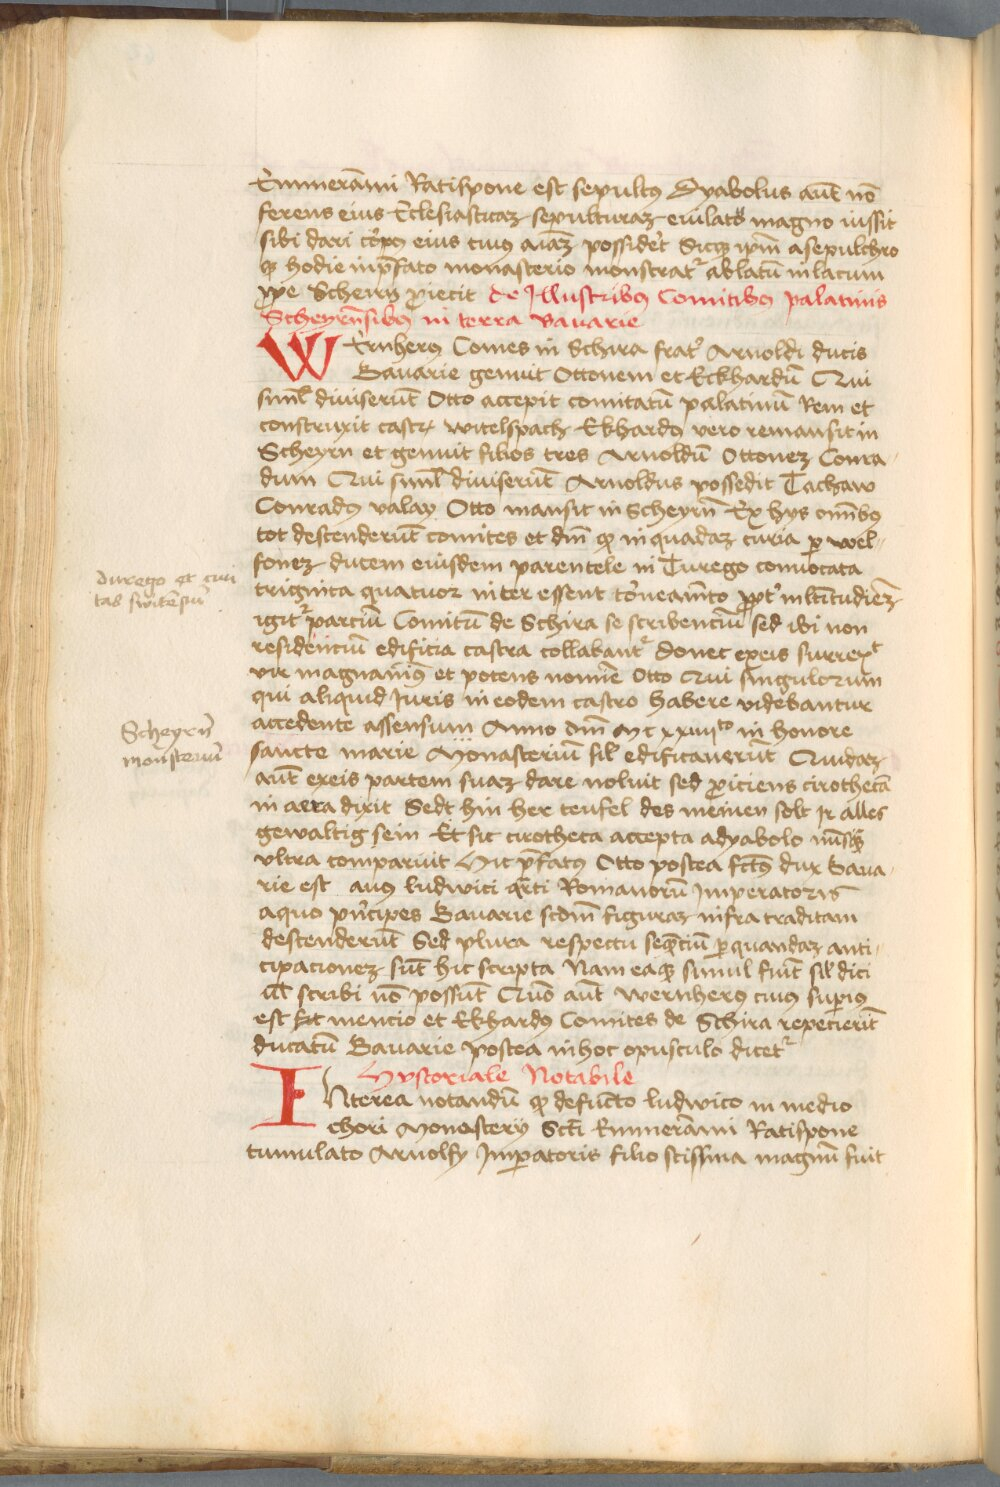 Emmerāmi Ratispone est sepultꝰ Dyabolus aūt nō
ferens eius Ecclesiasticaꝫ sepulturaꝫ eiulatꝰ magno iussit
sibi dari corpꝰ eius cuiꝰ aīaꝫ possidet Sicqꝫ ip̄m a sepulchro
qd̓ hodie in p̄fato monasterio monstratᷣ ablatū in lacum
ꝓpe Scheirn ꝓiecit de Illustribꝰ Comitibꝰ palatinis
Scheyrn̄sibꝰ in terra Bauarie
WErnherꝰ Comes in Schira frat̓ Arnoldi ducis
Bauarie genuit Ottonem et Eckhardū Qui
siml̓ diuiserūt Otto accepit comitatū palatinū Rem et
construxit castꝝ witelspach Ekhardꝰ vero remansit in
Scheyrn et genuit filios tres Arnoldū Ottoneꝫ Conra-
dum Qui siml̓ diuiserūt Arnoldus possedit Tachaw
Conradꝰ valay Otto mansit in Scheyrn̄ Ex hys om̄ibꝰ
tot descenderūt comites et dn̄i qd̓ in quadaꝫ curia ꝑ wel-
foneꝫ ducem eiusdem parentele in Turego conuocata
triginta quatuor inter essent torneamēto ꝓpt̓ m̄ltitudieꝫ
igitᷣ partiū Comitū de Schira se scribenciū sed ibi non
residenciū edificia castra collabantᷣ donec ex eis surrexᵗ
vir magnanimꝰ et potens nomīe Otto Qui singulorum
qui aliquid Iuris in eodem castro habere videbantur
accedente assensum Anno dn̄i Mcxxiiiiᵗᵒ in honore
sancte marie Monasteriū sil̓ edificauerūt Quidaꝫ
aūt ex eis partem suaꝫ dare noluit sed ꝓiciens cirothecā
in aera dixit Sedt hin her teufel des meinen solt Ir alles
gewaltig sein Et sic cirotheca accepta a dyabolo nūsqꝫ
vltra comparuit Hic p̄fatꝰ Otto postea fctꝰ dux Baua-
rie est auꝰ ludwici qͬti Romanorū Imperatoris
a quo pn̓cipes Bauarie scdm̄ figuraꝫ infra traditam
descenderūt Sed plura respectu seqn̄tiū ꝑ quandaꝫ anti-
cipacioneꝫ sūt hic scripta Nam ea qͣ simul fiūt sil̓ dici
ul̓ scribi nō possūt Quō aūt wernherꝰ cuiꝰ supiꝰ
est fct̄ mencio et Ekhardꝰ Comites de Schira repecierīt
ducatū Bauarie postea in hoc opusculo dicetᷣ
Hystoriale Notabile
INterea notandū qd̓ defūcto ludwico in medio
chori Monastery Scti̓ Emmerāmi Ratispone
tumulato Arnolfy Imꝑatoris filio scissura magnū fuit
durego et ciui
tas switēsiū
Scheyrn̄
monsteriū